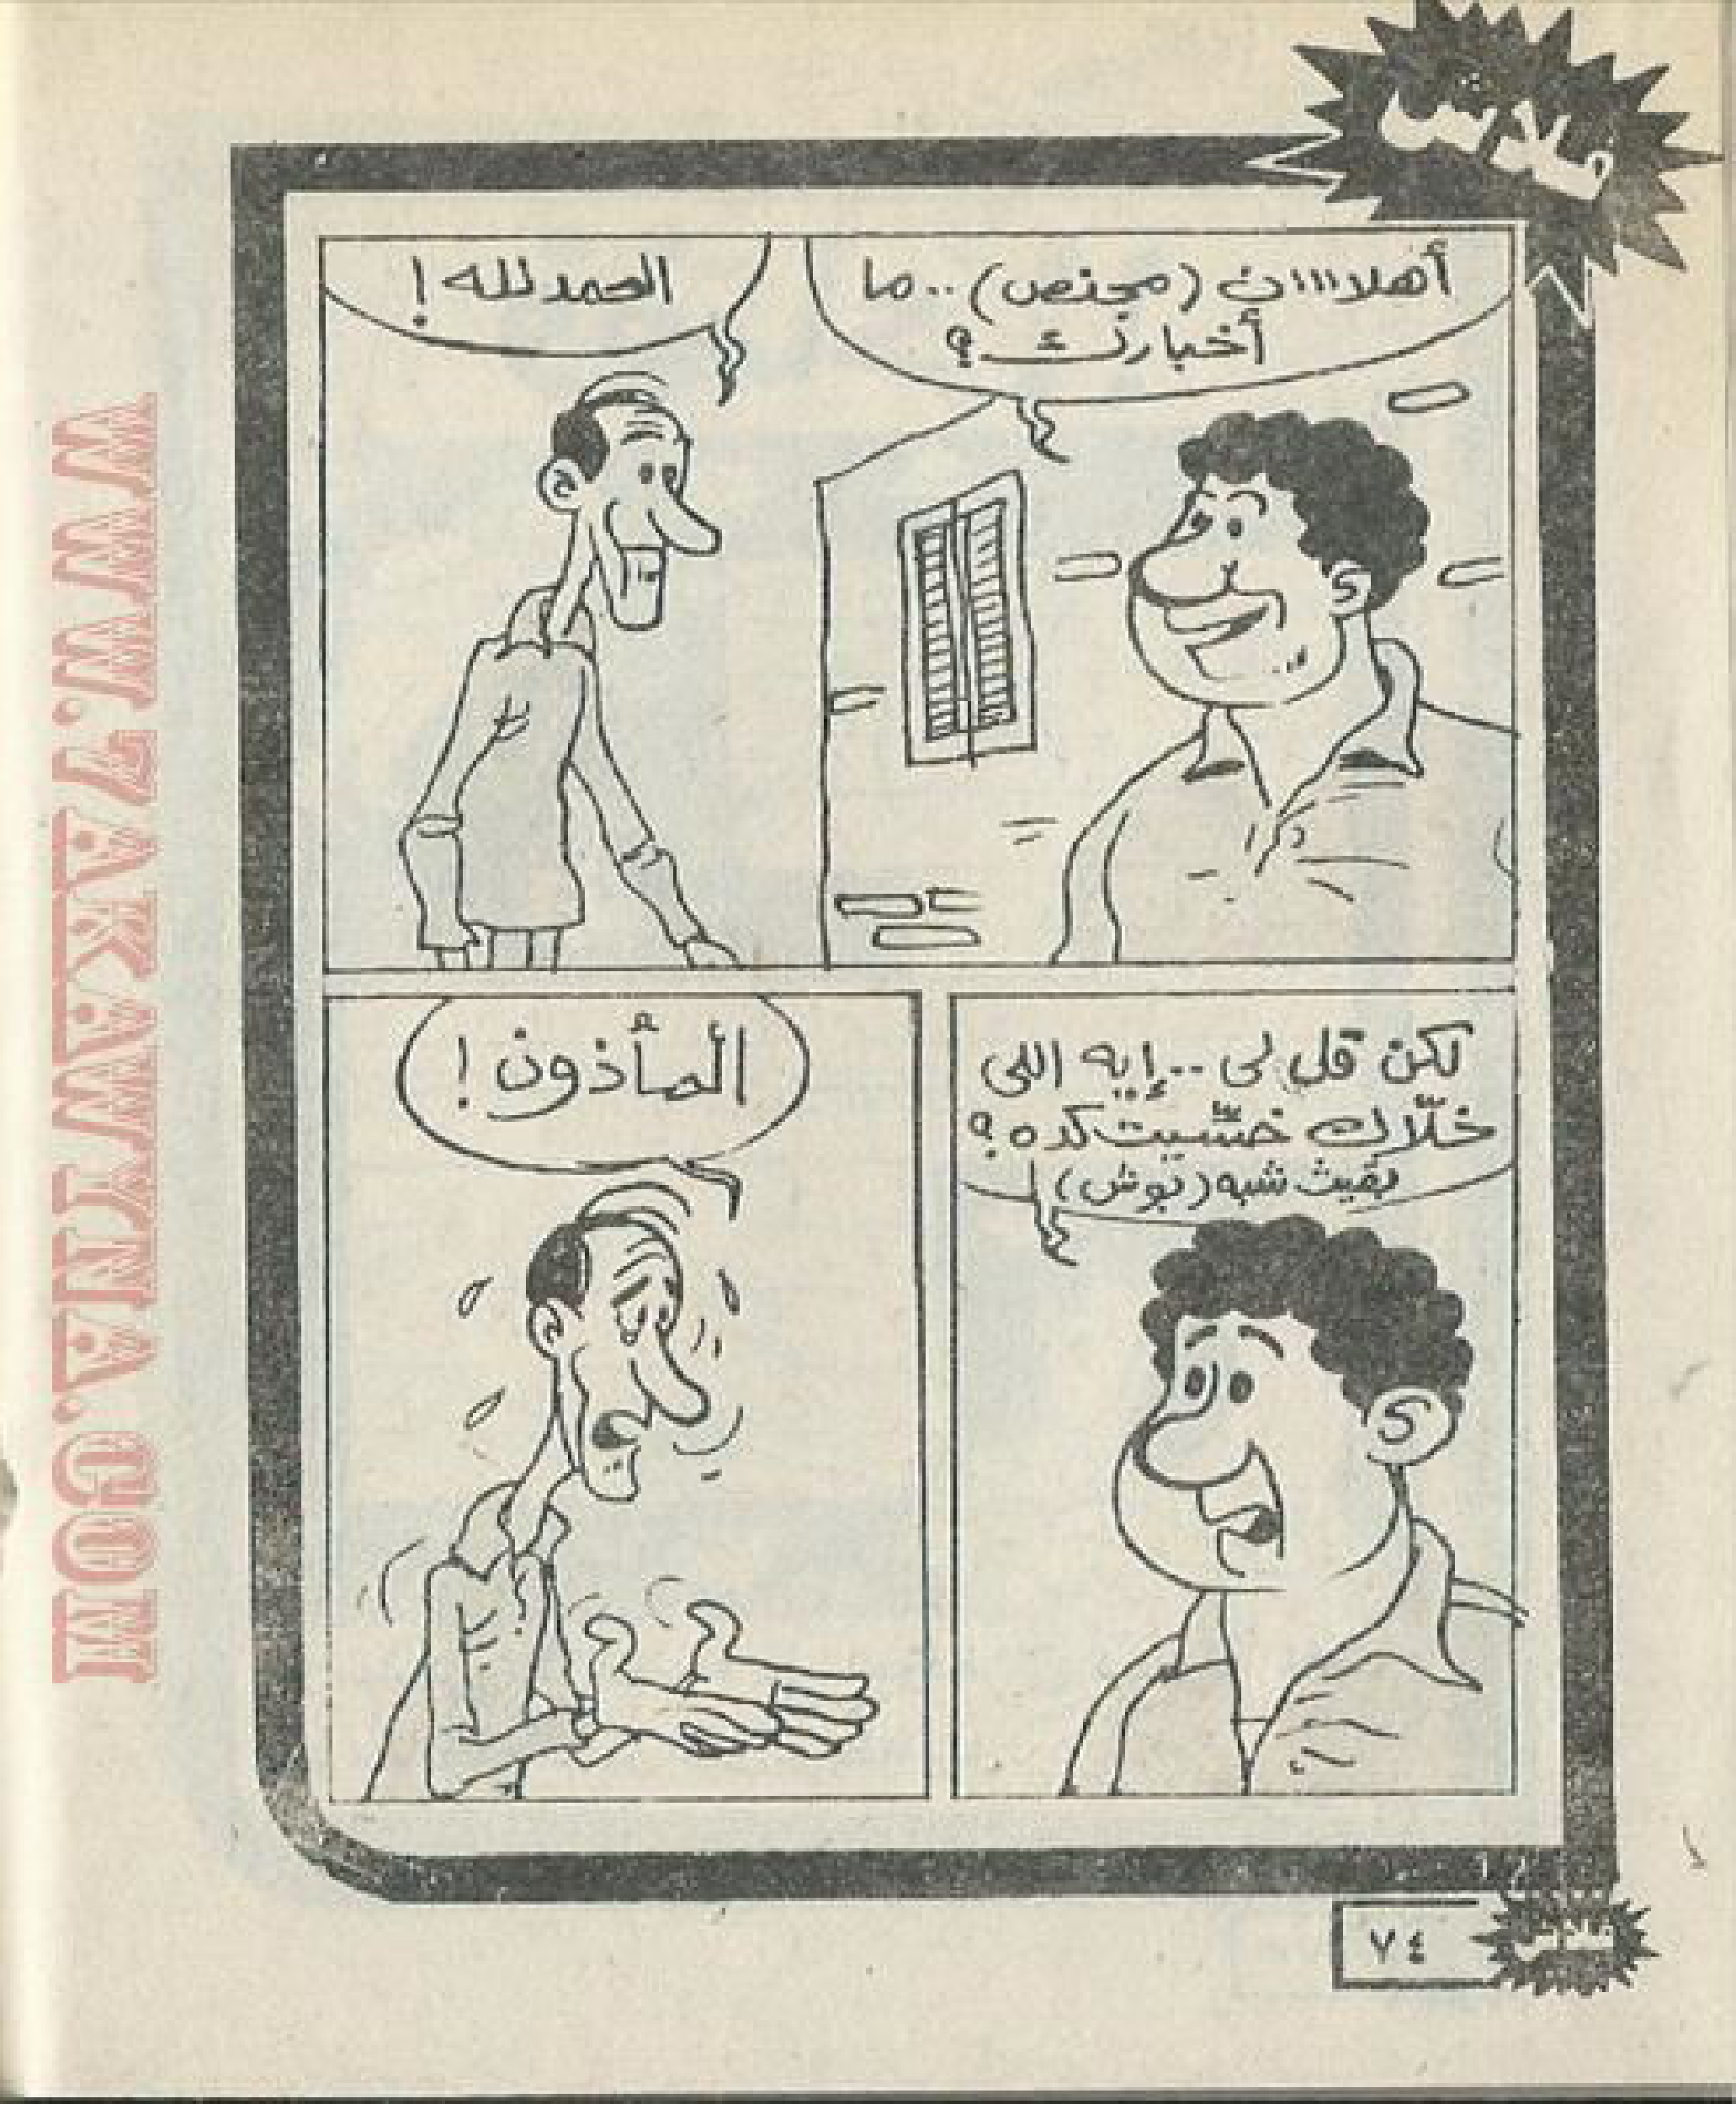 فلاش
أهلاااان (مجنص).. ما
أخبارك؟
الحمد لله!
لكن قل لى.. إيه اللى
خلّاك خسّيت كده؟
بقيت شبه (بوش)
المأذون!
٧٤
WWW.7AKAWITNA.COM